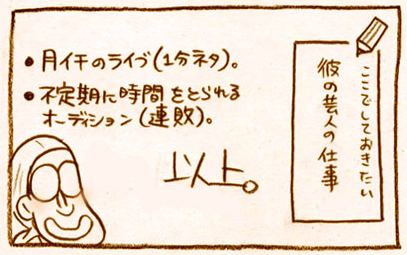 ここでしておきたい
彼の芸人の仕事
●月イチのライブ(1分ネタ)。
●不定期に時間をとられる
オーディション(連敗)。
以上。